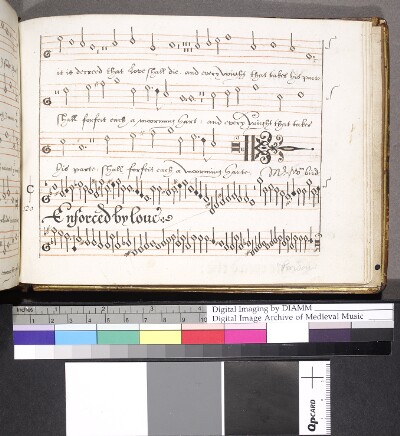 it is decreed that love shall die and every wight that takes his parte
shall forfeit each a mourning hart : and every wight that takes
his parte shall forfeit each a mourning harte. Mr Wo bird
Enforced by love
Inches 1 2
1 2 3 4 5 6 7 8 9 10
Digital Imaging by DIAMM
Digital Image Archive of Medieval Music
QPCARD